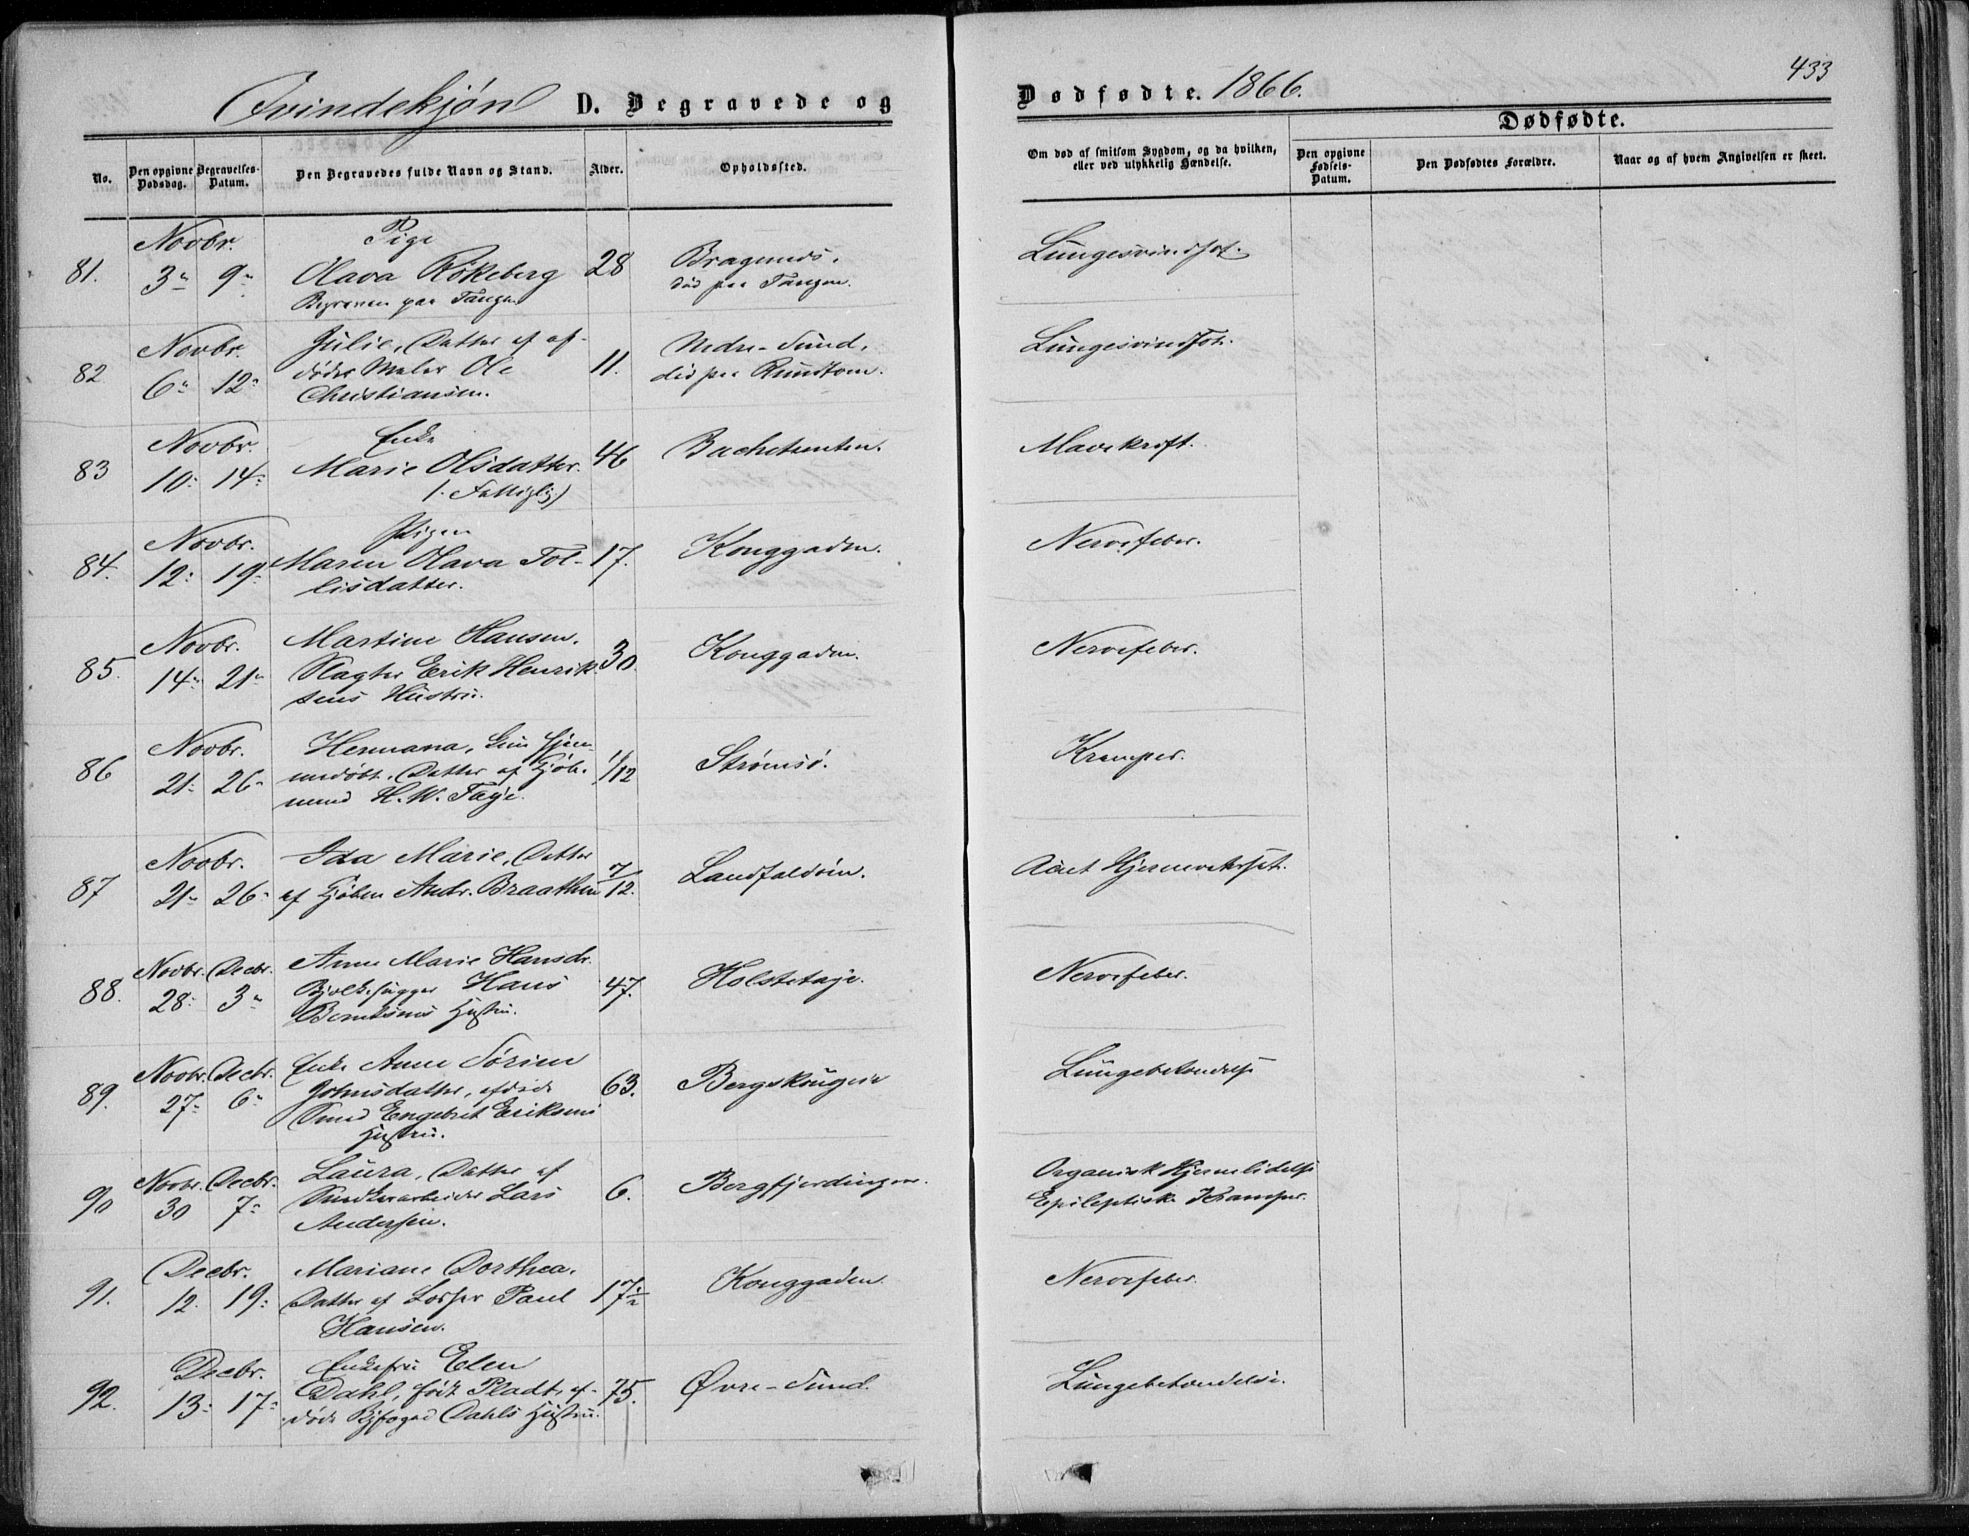 Qvindekjøn D. Begravede og
Dødfødte. 1866.
433
No.
Den opgivne Dødsdag.
Begravelses-Datum.
Den Begravedes fulde Navn og Stand.
Alder.
Opholdssted.
Om død af smitsom Sygdom, og da hvilken,
eller ved ulykkelig Hændelse.
Dødfødte.
Den opgivne Fødsels-Datum.
Den Dødfødtes Forældre.
Naar og af hvem Angivelsen er skeet.
Novbr. Pige
81. 3 9 Olava Kökeberg 28 Bragernes. Lungesvindsot.
Begraven paa Tangen død paa Tangen.
Novbr. Julie, Datter af af-
82 6 12 døde Maler Ole 11. Nedre-Sund, Lungesvindsot.
Christiansen. død paa
Novbr. Enke
83 10 14 Marie Olsdatter. 46 Bachetrenten. Mavekræft.
(Fattiglig)
Novbr. Pigen
84. 12 19 Maren Olava Tol- 17. Konggaden. Nervefeber.
lisdatter.
Novbr. Martine Hansen.
85. 14 21 Slagter Erik Henrik- 30. Konggaden. Nervefeber.
sens Hustru.
Novbr. Hermana, hjem-
86 21 26 medøbt, Datter af Kjøb- 1/12 Strömsö. Kramper.
mand H. W. Faye.
Novbr. Ida Marie, Datter
87 21 26 af Kjøbm Andr. Braathen 7/12. Landfaldöen.
Novbr. Decbr. Anne Marie Hansdr.
88. 28 3 Bjelkehugger Hans 47. Holstetage. Nervefeber.
Berntsens Hustru.
Novbr. Decbr. Enke Anne Sörine
89. 27 6 Johnsdatter, afdøde 63. Bergskougen Lungebetændelse
Smed Engebret Eriksens
Hustru.
Novbr. Decbr. Laura, Datter af
90 30 7 Lars 6. Bergfjerdingen. Organisk Hjernelidelse
Andersen. Epileptiske Kramper.
Decbr. Mariane Dorthea,
91. 12 19 Datter af Losser Paul 17 1/2 Konggaden Nervefeber.
Hansen.
Decbr. Enkefru Elen
92. 13 17 Dahl, född Pladt, af- 75. Øvre-Sund. Lungebetændelse.
døde Byfoged Dahls Hustru.